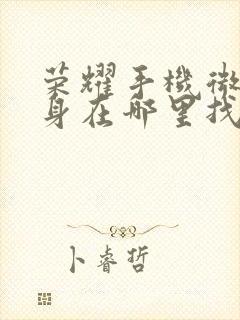 荣耀手機微
身在哪里找
卜睿哲